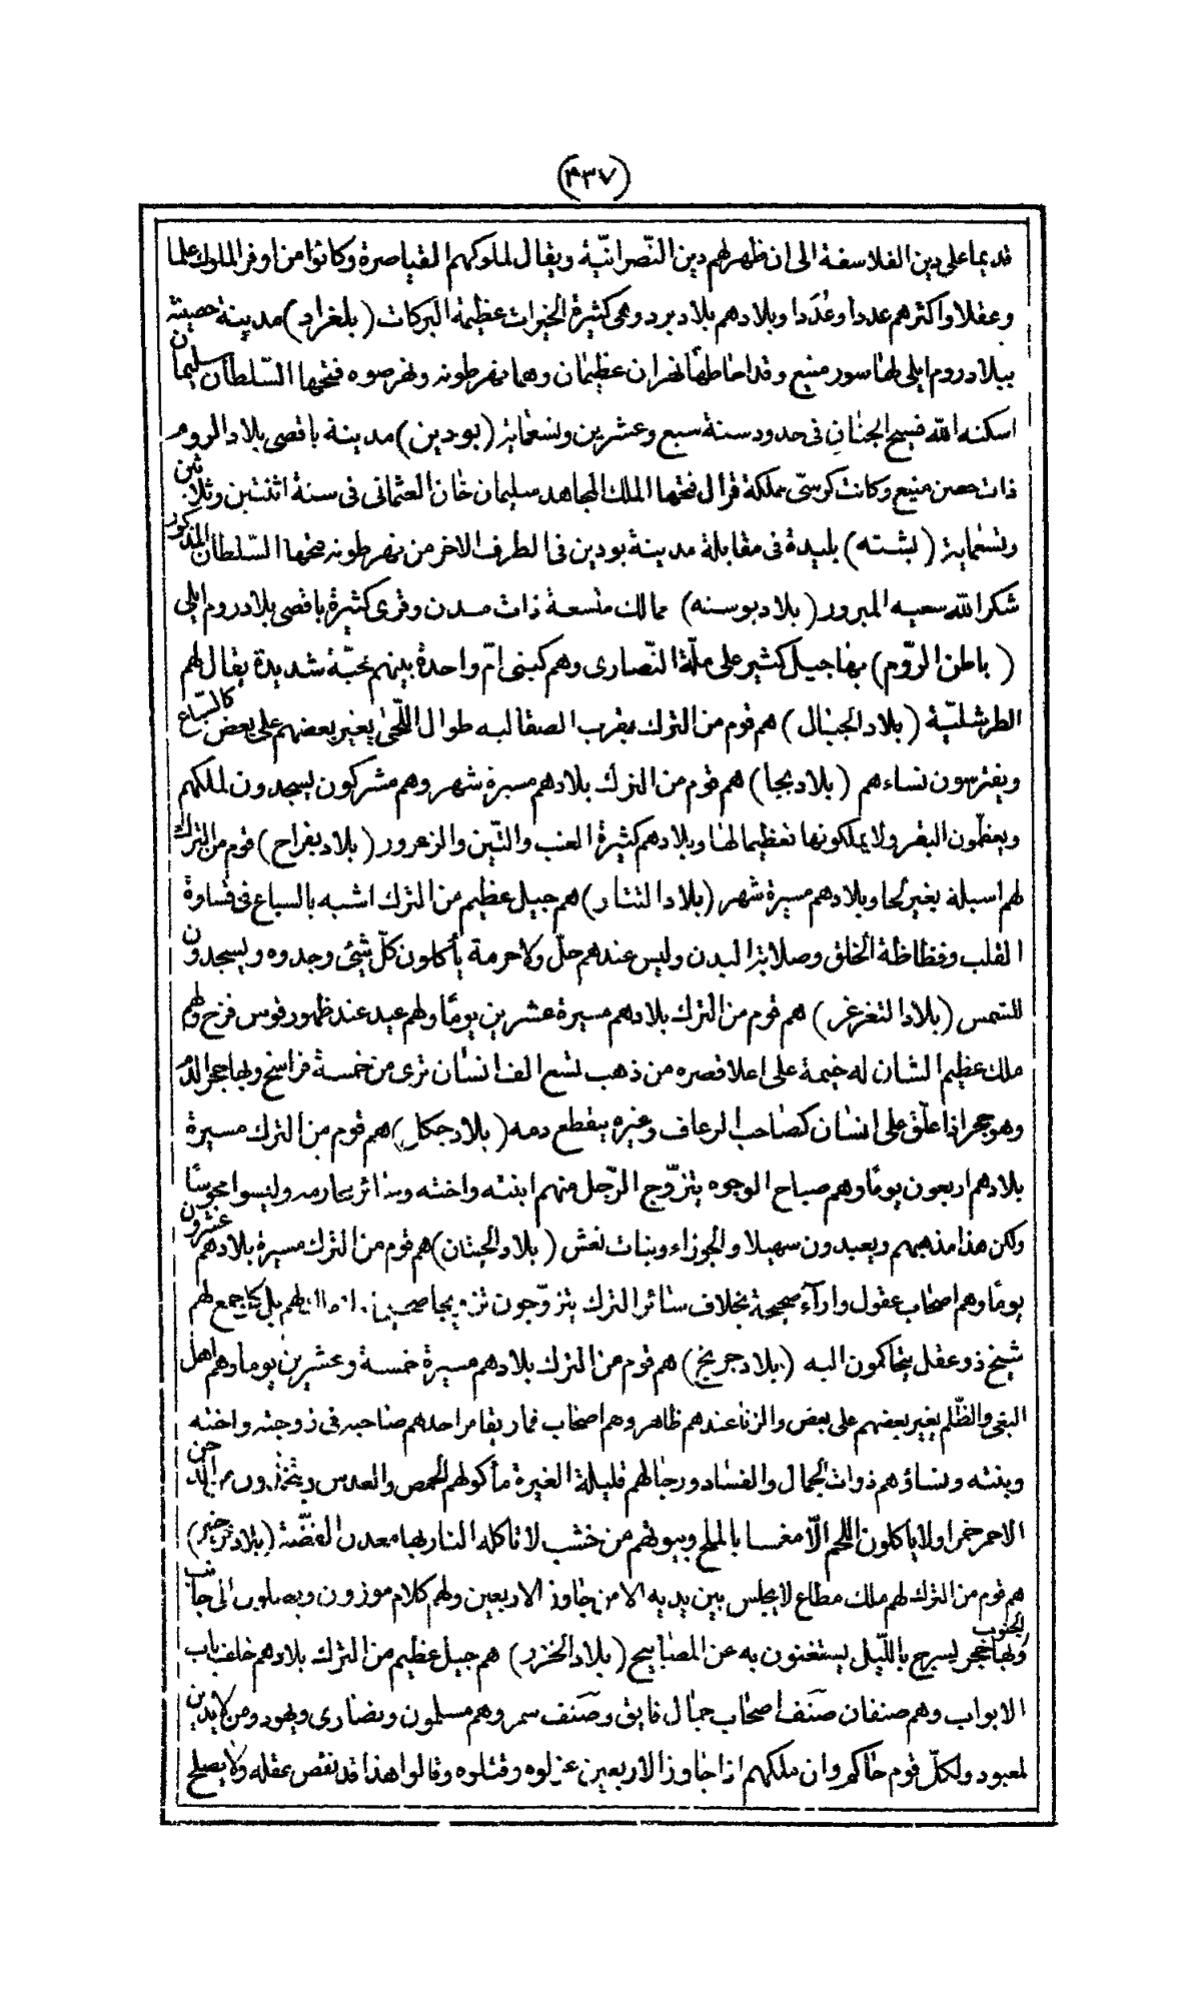 (٤٣٧)
قديما على دين الفلاسفة الى ان ظهر لهم دين النّصرانيّة ويقال لملوكهم القياصرة وكانوا من اوفر الملوك علما
وعقلا واكثرهم عددا وعُدَدا وبلادهم بلاد برد وهى كثيرة الخيرات عظيمة البركات (بلغراد) مدينة حصينة
ببلاد روم ايلى لها سور منيع وقد احاط بها نهران عظيمان وهما نهر طونه ونهر صوه فتحها السّلطان سليمان
اسكنه الله فسيح الجنان فى حدود سنة سبع وعشرين وتسعماية (بودين) مدينة باقصى بلاد الروم
ذات حصن منيع وكانت كرسىّ مملكة قرال فتحها الملك المجاهد سليمان خان العثمانى فى سنة اثنتين وثلاثين
وتسعماية (بشته) بليدة فى مقابلة مدينة بودين فى الطرف الاخر من نهر طونه فتحها السّلطان المذكور
شكر الله سعيه المبرور (بلاد بوسنه) ممالك متسعة ذات مدن وقرى كثيرة باقصى بلاد روم ايلى
(باطن الرّوم) بها جيل كثير على ملّة النّصارى وهم كبنى امّ واحدة بينهم محبّة شديدة يقال لهم
الطرشليّة (بلاد الجبال) هم قوم من الترك بقرب الصقالبه طوال اللّحى يغير بعضهم على بعض كالسّباع
ويفترسون نساءهم (بلاد بجا) هم قوم من الترك بلادهم مسيرة شهر وهم مشركون يسجدون لملكهم
ويعظّمون البقر ولا يملكونها تعظيما لها وبلادهم كثيرة العنب والتّين والزعرور (بلاد بغراج) قوم من الترك
لهم اسبلة بغير لحا وبلادهم مسيرة شهر (بلاد التتار) هم جيل عظيم من الترك اشبه بالسباع فى قساوة
القلب وفظاظة الخلق وصلابة البدن وليس عندهم حلّ ولا حرمة يأكلون كلّ شئ وجدوه ويسجدون
للشمس (بلاد التغزغز) هم قوم من الترك بلادهم مسيرة عشرين يومًا ولهم عيد عند ظهور قوس قزح ولهم
ملك عظيم الشان له خيمة على اعلا قصره من ذهب تسع الف انسان ترى من خمسة فراسخ وبها حجر الدّم
وهو حجر اذا علّق على انسان كصاحب الرعاف وغيره ينقطع دمه (بلاد جكل) هم قوم من الترك مسيرة
بلادهم اربعون يومًا وهم صباح الوجوه يتزوّج الرّجل منهم ابنته واخته وسائر محارمه وليسوا مجوسًا
ولكن هذا مذهبهم ويعبدون سهيلا والجوزاء وبنات نعش (بلاد الختان) هم قوم من الترك مسيرة بلادهم عشرون
يومًا وهم اصحاب عقول وارآء صحيحة بخلاف سائر الترك يتزوّجون تزويجا صحيحا لهم بل كا يجمع لهم
شيخ ذو عقل يتحاكمون اليه (بلاد جريخ) هم قوم من الترك بلادهم مسيرة خمسة وعشرين يوما وهم اهل
البغى والظّلم يغير بعضهم على بعض والزنا عندهم ظاهر وهم اصحاب قمار يقامر احدهم صاحبه فى زوجته واخته
وبنته ونساؤهم ذوات الجمال والفساد ورجالهم قليلة الغيرة مأكولهم الحمص والعدس ويتخذون من الدخن
الاحمر خمرا ولا ياكلون اللحم الّا مغسا بالملح وبيوتهم من خشب لا تاكله النار بها معدن الفضّة (بلاد خرخير)
هم قوم من الترك لهم ملك مطاع لا يجلس بين يديه الا من جاوز الاربعين ولهم كلام موزون ويصلون الى جانب
الجنوب ولها حجر يسرج باللّيل يستغنون به عن المصابيح (بلاد الخزر) هم جيل عظيم من الترك بلادهم خلف باب
الابواب وهم صنفان صَنف اصحاب جمال فايق وصَنف سمر وهم مسلمون ونصارى ويهود ومن لا يدين
لمعبود ولكلّ قوم حاكم وان ملكهم اذا جاوز الاربعين عزلوه وقتلوه وقالوا هذا قد نقص عقله ولا يصلح